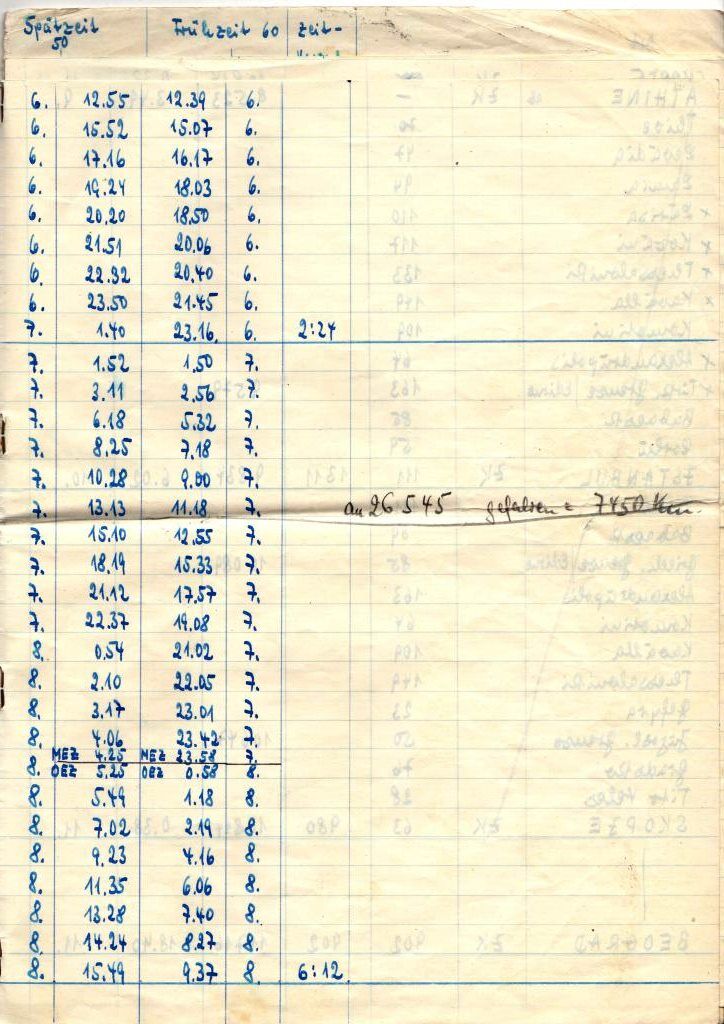 Spätzeit Frühzeit 60 Zeit-
50
6. 12.55 12.39 6.
6. 15.52 15.07 6.
6. 17.16 16.17 6.
6. 19.24 18.03 6.
6. 20.20 18.50 6.
6. 21.51 20.06 6.
6. 22.32 20.40 6.
6. 23.50 21.45 6.
7. 1.40 23.16. 6. 2:24
7. 1.52 1.50 7.
7. 3.11 2.56 7.
7. 6.18 5.32 7.
7. 8.25 7.18 7.
7. 10.28 9.00 7.
7. 13.13 11.18 7. an 26 545 gefahren = 7450 Km.
7. 15.10 12.55 7.
7. 18.19 15.33 7.
7. 21.12 17.57 7.
7. 22.37 19.08 7.
8. 0.54 21.02 7.
8. 2.10 22.05 7.
8. 3.17 23.01 7.
8. 4.06 23.42 7.
MEZ 4.25 MEZ 23.58 7.
8. OEZ 5.25 OEZ 0.58 8.
8. 5.49 1.18 8.
8. 7.02 2.19 8.
8. 9.23 4.16 8.
8. 11.35 6.06 8.
8. 13.28 7.40 8.
8. 14.24 8.27 8.
8. 15.49 9.37 8. 6:12